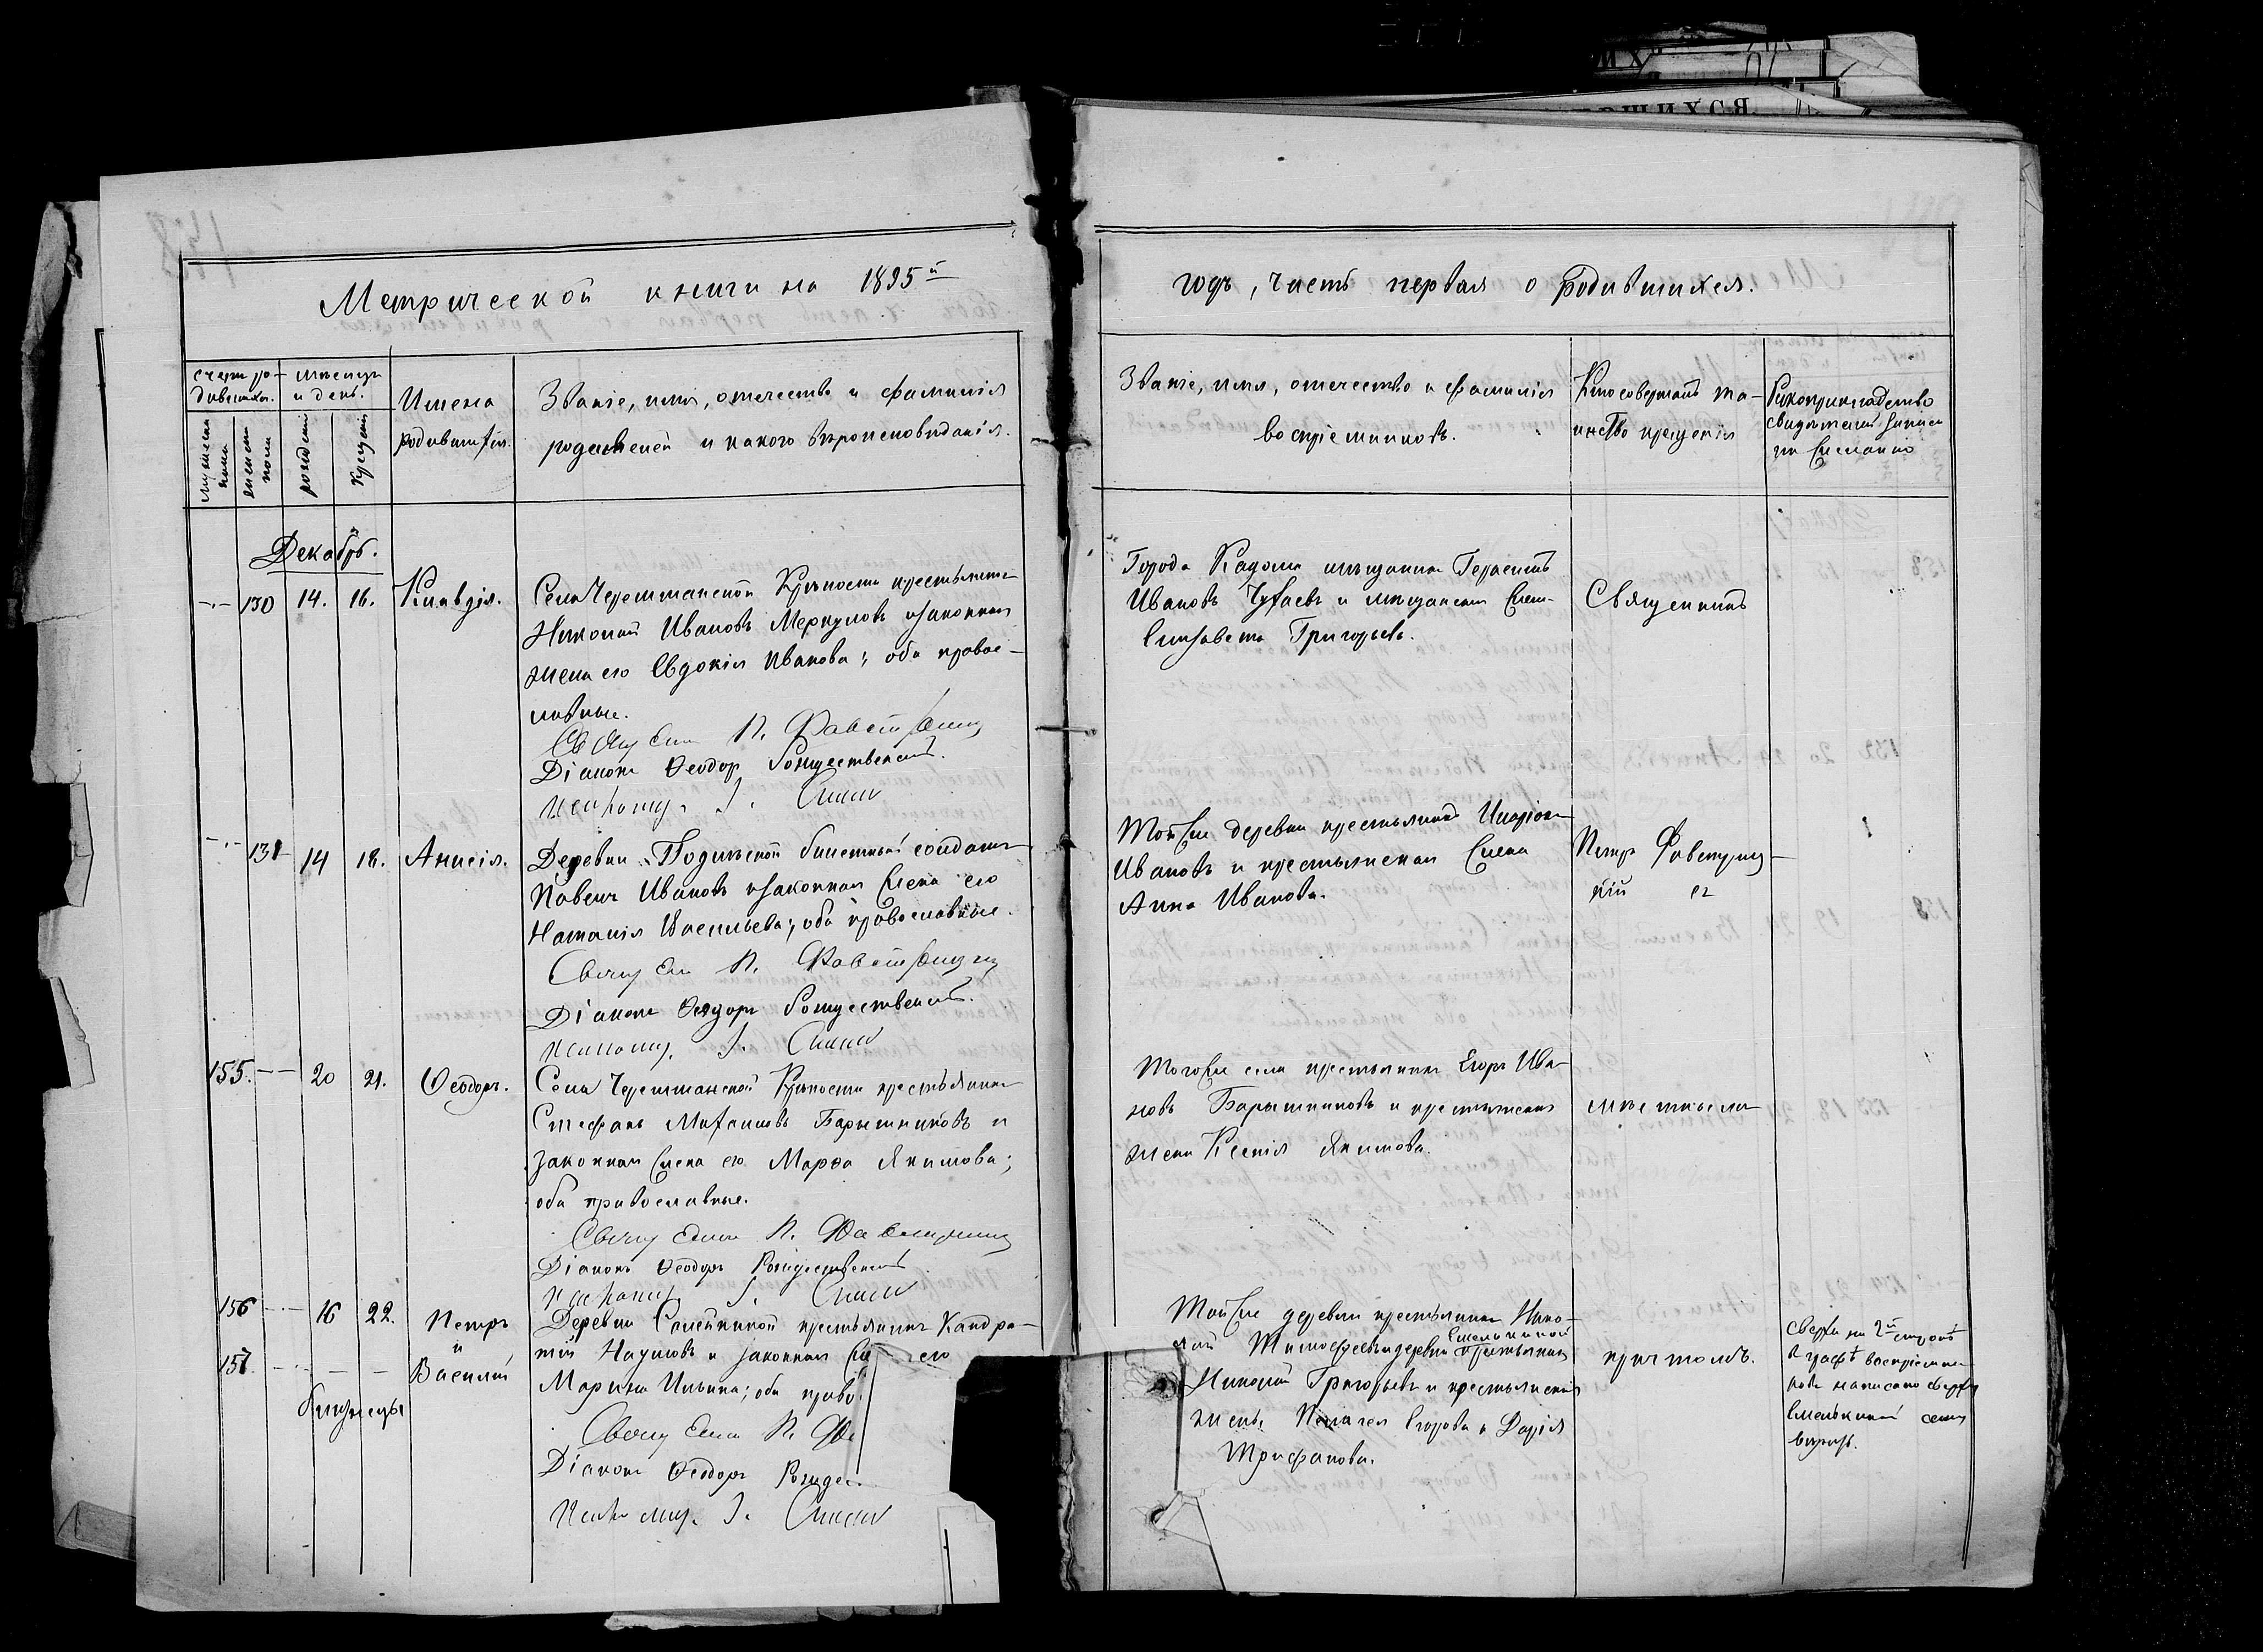 Метрической книги на 1895й
годъ, часть первая о родившихся.
Счетъ ро-
дившихся.
мѣсяцъ
и день.
мужеска
пола
женска
пола
рожденія
крещенія
Имена
родившихся.
Званіе, имя, отечество и фамилія
родителей и какого вѣроисповѣданія.
Званіе, имя, отечество и фамилія
воспріемниковъ.
Кто совершалъ та-
инство крещенія
Рукоприкладство
свидѣтелей записи
по желанію
Декабрь.
130 14. 16. Клавдія.
Села Черемшанской Крѣпости крестьянинъ
Николай Ивановъ Меркуловъ и законная
жена его Евдокія Иванова; оба право-
славные.
Священ П. Фавстриц
Діаконъ Ѳеодоръ Рождественскій.
Псаломщ. І.
Города Кадома мѣщанинъ Герасимъ
Ивановъ Чуфаевъ и мѣщанская жена
Елизавета Григорьева.
Священникъ
131 14 18. Анисія.
Деревни Подлѣсной билетный солдатъ
Павелъ Ивановъ и законная жена его
Наталія Васильева; оба православные.
Священ П. Фавстрицкій
Діаконъ Ѳеодоръ Рождественскій.
Псаломщ. І.
Той же деревни крестьянинъ Иларіонъ
Ивановъ и крестьянская жена
Анна Иванова.
Петръ Фавстриц-
кій съ
155. 20 21. Ѳеодоръ.
Села Черемшанской Крѣпости крестьянинъ
Стефанъ Маѯимовъ Барышниковъ и
законная жена его Марѳа Якимова;
оба православные.
Священ П. Фавстриц
Діаконъ Ѳеодоръ Рождественскій
Псаломщ. І.
Того же села крестьянинъ Егоръ Ива-
новъ Барышниковъ и крестьянская
жена Ксенія Якимова.
мѣстнымъ
156 16 22. Петръ
и
157. Василій
близнецы
Деревни крестьянинъ Кандра-
тій Наумовъ и законная же его
Марина Ильина; оба право
Священ П. Фа
Діаконъ Ѳеодоръ Рожде
Псаломщ. І.
Той же деревни крестьянинъ Нико-
лай Тимофеевъ и деревни Емелькиной крестьянинъ
Николай Григорьевъ и крестьянскія
жены Пелагея Егорова и Дарія
Трифанова.
причтомъ.
Сверху на 2й строкѣ
въ графѣ воспріемни-
ковъ написано сверху
Емелькиной сему
вѣрить.